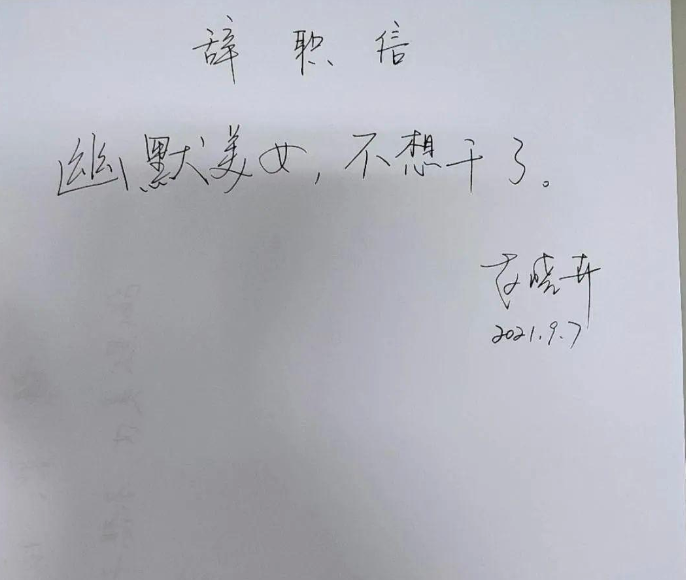 辞职信
幽默美女，不想干了。
晓卉
2021.9.7